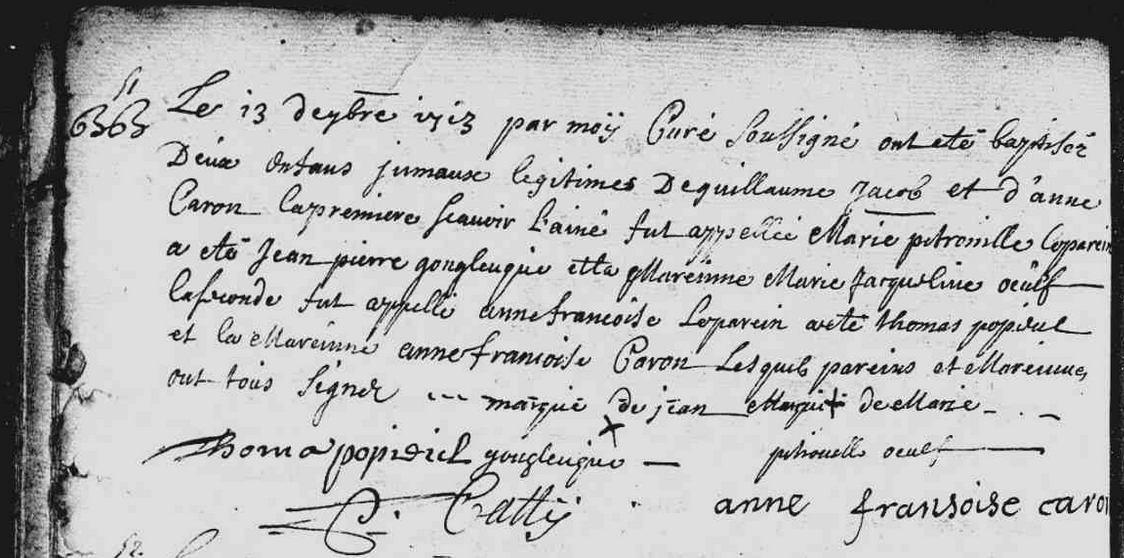 51
6363
Le 13 de 9bre 1713 par moÿ Curé Soussigné ont eté baptisèz
Deux enfans jumaux legitimes De guillaume Jacob et d'anne
Caron la premiere scavoir l'ainé fut appellée Marie pitronille le parein
a eté Jean pierre gongleuque et la Mareinne Marie Jacqueline oeulf
la seconde fut appelle anne francoise le parein a eté thomas popideul
et la Mareinne anne francoise Caron Lesquels pareins et Mareinnes
ont tous signez --- marque de jean Marque de Marie -
Thoma popidiel gongleuque — pitronelle oeulf
Catty anne fransoise caron
52.